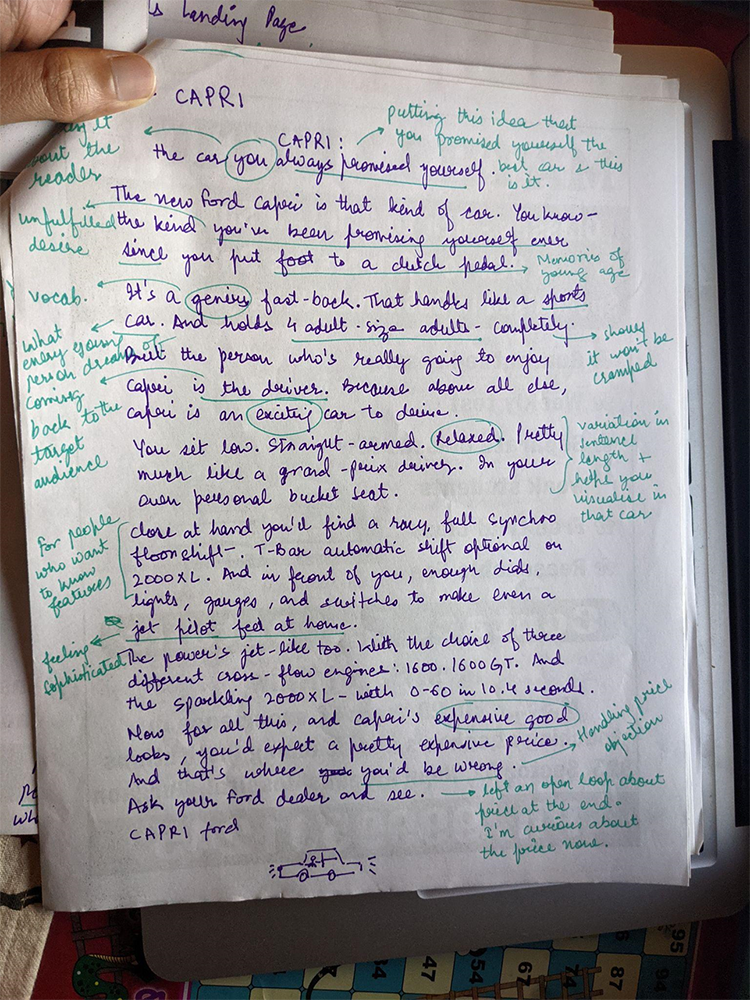 s Landing Page
CAPRI
CAPRI:
the car you always promised yourself.
putting this idea that
you promised yourself the
best car & this
is it.
it
about the
reader
The new Ford Capri is that kind of car. You know-
the kind you've been promising yourself ever
since you put foot to a clutch pedal.
unfulfilled
desire
Memories of
young age
It's a genius fast-back. That handles like a sports
car. And holds 4 adult-size adults- completely.
vocab.
shows
it won't be
cramped
But the person who's really going to enjoy
capri is the driver. Because above all else,
capri is an exciting car to drive.
What
every young
person dreams of
coming
back to the
target
audience
You sit low. Straight-armed. Relaxed. Pretty
much like a grand-prix driver. In your
own personal bucket seat.
variation in
sentence
length +
helps you
visualise in
that car
close at hand you'll find a racy, full synchro
floorshift-. T-Bar automatic shift optional on
2000XL. And in front of you, enough dials,
lights, gauges, and switches to make even a
jet pilot feel at home.
For people
who want
to know
features
feeling
sophisticated
The power's jet-like too. With the choice of three
different cross-flow engines: 1600. 1600GT. And
the sparkling 2000XL- with 0-60 in 10.4 seconds.
Now for all this, and capri's expensive good
looks, you'd expect a pretty expensive price.
And that's where you'd be wrong.
Handling price
objection
Ask your Ford dealer and see.
left an open loop about
price at the end.
I'm curious about
the price now.
CAPRI ford
wh
95
94
87
86
54
47